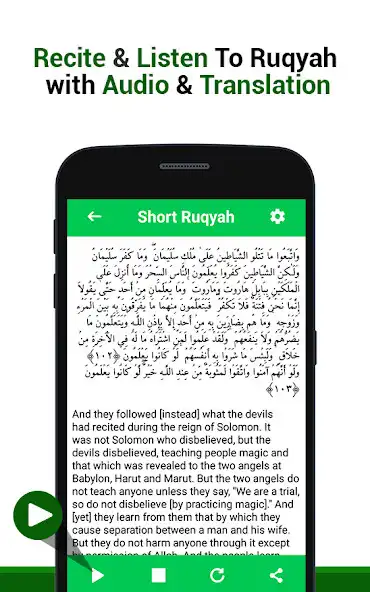 Recite & Listen To Ruqyah
with Audio & Translation
Short Ruqyah
وَاتَّبَعُوا مَا تَتْلُو الشَّيَاطِينُ عَلَىٰ مُلْكِ سُلَيْمَانَ ۖ وَمَا كَفَرَ سُلَيْمَانُ
وَلَٰكِنَّ الشَّيَاطِينَ كَفَرُوا يُعَلِّمُونَ النَّاسَ السِّحْرَ وَمَا أُنزِلَ عَلَى
الْمَلَكَيْنِ بِبَابِلَ هَارُوتَ وَمَارُوتَ ۚ وَمَا يُعَلِّمَانِ مِنْ أَحَدٍ حَتَّىٰ يَقُولَا
إِنَّمَا نَحْنُ فِتْنَةٌ فَلَا تَكْفُرْ ۖ فَيَتَعَلَّمُونَ مِنْهُمَا مَا يُفَرِّقُونَ بِهِ بَيْنَ الْمَرْءِ
وَزَوْجِهِ ۚ وَمَا هُم بِضَارِّينَ بِهِ مِنْ أَحَدٍ إِلَّا بِإِذْنِ اللَّهِ ۚ وَيَتَعَلَّمُونَ مَا
يَضُرُّهُمْ وَلَا يَنفَعُهُمْ ۚ وَلَقَدْ عَلِمُوا لَمَنِ اشْتَرَاهُ مَا لَهُ فِي الْآخِرَةِ مِنْ
خَلَاقٍ ۚ وَلَبِئْسَ مَا شَرَوْا بِهِ أَنفُسَهُمْ ۚ لَوْ كَانُوا يَعْلَمُونَ ﴿١٠٢﴾
وَلَوْ أَنَّهُمْ آمَنُوا وَاتَّقَوْا لَمَثُوبَةٌ مِّنْ عِندِ اللَّهِ خَيْرٌ ۖ لَّوْ كَانُوا يَعْلَمُونَ
﴿١٠٣﴾
And they followed [instead] what the devils
had recited during the reign of Solomon. It
was not Solomon who disbelieved, but the
devils disbelieved, teaching people magic and
that which was revealed to the two angels at
Babylon, Harut and Marut. But the two angels do
not teach anyone unless they say, "We are a trial,
so do not disbelieve [by practicing magic]." And
[yet] they learn from them that by which they
cause separation between a man and his wife.
But they do not harm anyone through it except
by permission of Allah. And the people learn